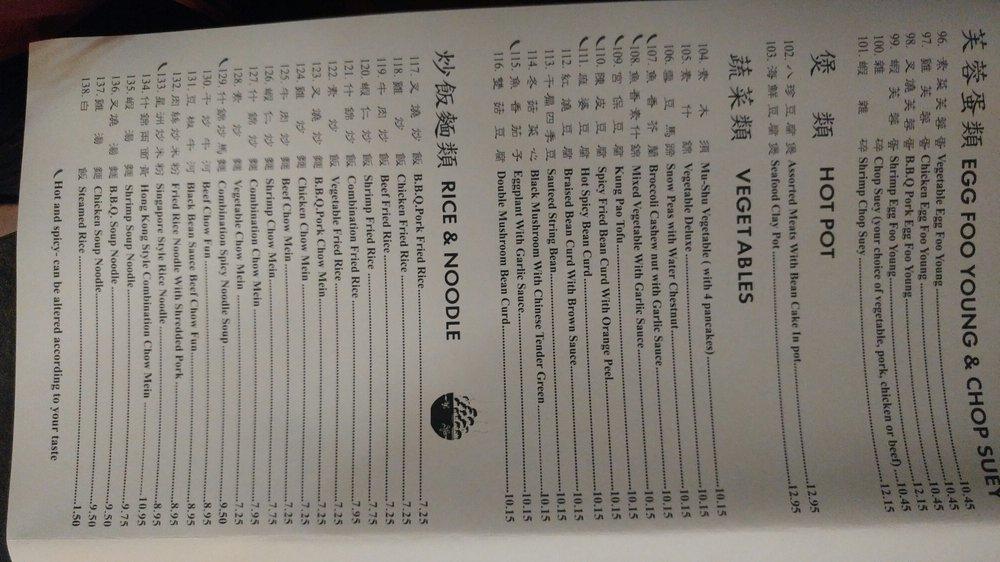 芙蓉蛋類 EGG FOO YOUNG & CHOP SUEY
96. 素菜芙蓉蛋 Vegetable Egg Foo Young 10.45
97. 雞芙蓉蛋 Chicken Egg Foo Young 10.45
98. 叉燒芙蓉蛋 B.B.Q Pork Egg Foo Young 10.45
99. 蝦芙蓉蛋 Shrimp Egg Foo Young 12.15
100. 雜碎 Chop Suey (your choice of vegetable, pork, chicken or beef) 10.45
101. 蝦雜碎 Shrimp Chop Suey 12.15
煲類 HOT POT
102. 八珍豆腐煲 Assorted Meats With Bean Cake In pot 12.95
103. 海鮮豆腐煲 Seafood Clay Pot 12.95
蔬菜類 VEGETABLES
104. 素木須 Mu-Shu Vegetable ( with 4 pancakes) 10.15
105. 素什錦 Vegetable Deluxe 10.15
106. 雪豆馬蹄 Snow Peas with Water Chestnut 10.15
107. 魚香芥蘭 Broccoli Cashew nut with Garlic Sauce 10.15
108. 魚香素什錦 Mixed Vegetable With Garlic Sauce 10.15
109. 宮保豆腐 Kung Pao Tofu 10.15
110. 陳皮豆腐 Spicy Fried Bean Curd With Orange Peel 10.15
111. 麻婆豆腐 Hot Spicy Bean Curd 10.15
112. 紅燒豆腐 Braised Bean Curd With Brown Sauce 10.15
113. 干扁四季豆 Sauteed String Bean 10.15
114. 冬菇菜心 Black Mushroom With Chinese Tender Green 10.15
115. 魚香茄子 Eggplant With Garlic Sauce 10.15
116. 雙菇豆腐 Double Mushroom Bean Curd 10.15
炒飯麵類 RICE & NOODLE
117. 叉燒炒飯 B.B.Q.Pork Fried Rice 7.25
118. 雞炒飯 Chicken Fried Rice 7.25
119. 牛肉炒飯 Beef Fried Rice 7.25
120. 蝦仁炒飯 Shrimp Fried Rice 7.75
121. 什錦炒飯 Combination Fried Rice 7.95
122. 素炒飯 Vegetable Fried Rice 7.25
123. 叉燒炒麵 B.B.Q.Pork Chow Mein 7.25
124. 雞炒麵 Chicken Chow Mein 7.25
125. 牛肉炒麵 Beef Chow Mein 7.25
126. 蝦仁炒麵 Shrimp Chow Mein 7.95
127. 什錦炒麵 Combination Chow Mein 7.95
128. 素炒麵 Vegetable Chow Mein 7.25
129. 什錦炒馬麵 Combination Spicy Noodle Soup 9.50
130. 牛炒河 Beef Chow Fun 8.95
131. 豆椒牛河 Black Bean Sauce Beef Chow Fun 8.95
132. 肉絲炒米粉 Fried Rice Noodle With Shredded Pork 8.95
133. 星洲炒米粉 Singapore Style Rice Noodle 8.95
134. 什錦兩面黃 Hong Kong Style Combination Chow Mein 10.95
135. 蝦湯麵 Shrimp Soup Noodle 9.75
136. 叉燒湯麵 B.B.Q. Soup Noodle 9.50
137. 雞湯麵 Chicken Soup Noodle 9.50
138. 白飯 Steamed Rice 1.50
Hot and spicy- can be altered according to your taste